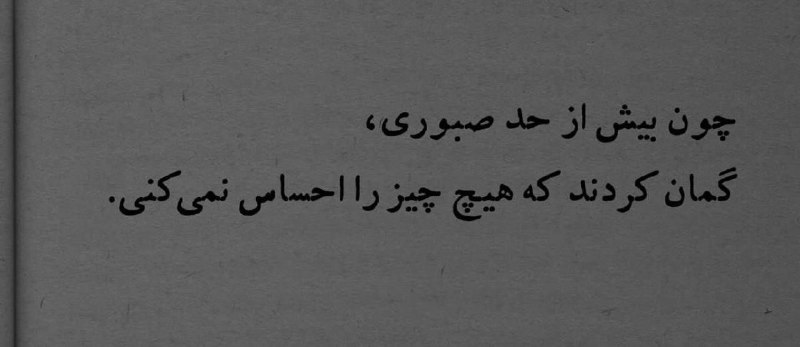 چون بیش از حد صبوری،
گمان کردند که هیچ چیز را احساس نمی‌کنی.